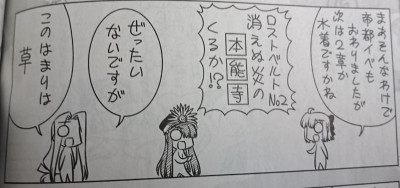 まあそんなわけで
帝都イベも
おわりましたが
次は2章か
水着ですかね
ロストベルトNo.2
消えぬ炎の
本能寺
くるか!?
ぜったい
ないですが
このはまりは
草